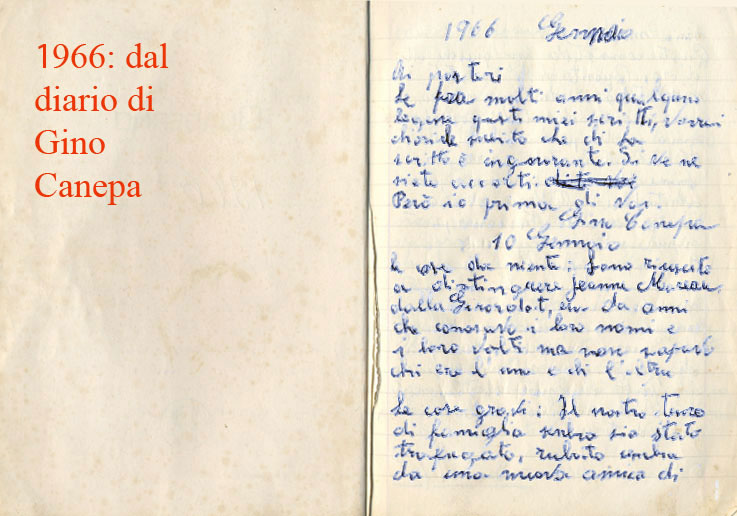 1966: dal
diario di
Gino
Canepa
1966 Gennaio
Ai posteri
Se fra molti anni qualcuno
legesse questi miei scritti, vorrei
che che di ha
scritto è ingnorante. Se ve ne
siete accorti.
Però io prima di voi.
Gino Canepa
10 Gennaio
Le cose da niente: Sono riuscito
a distinguere Jeanne Moreau
dalla Girardot, da anni
che conoscevo i loro nomi e
i loro volti ma non sapevo
chi era l'una e chi l'altra
Le cose gravi: Il nostro tesoro
di famiglia sembra sia stato
trafugato, rubato
da una nuova amica di